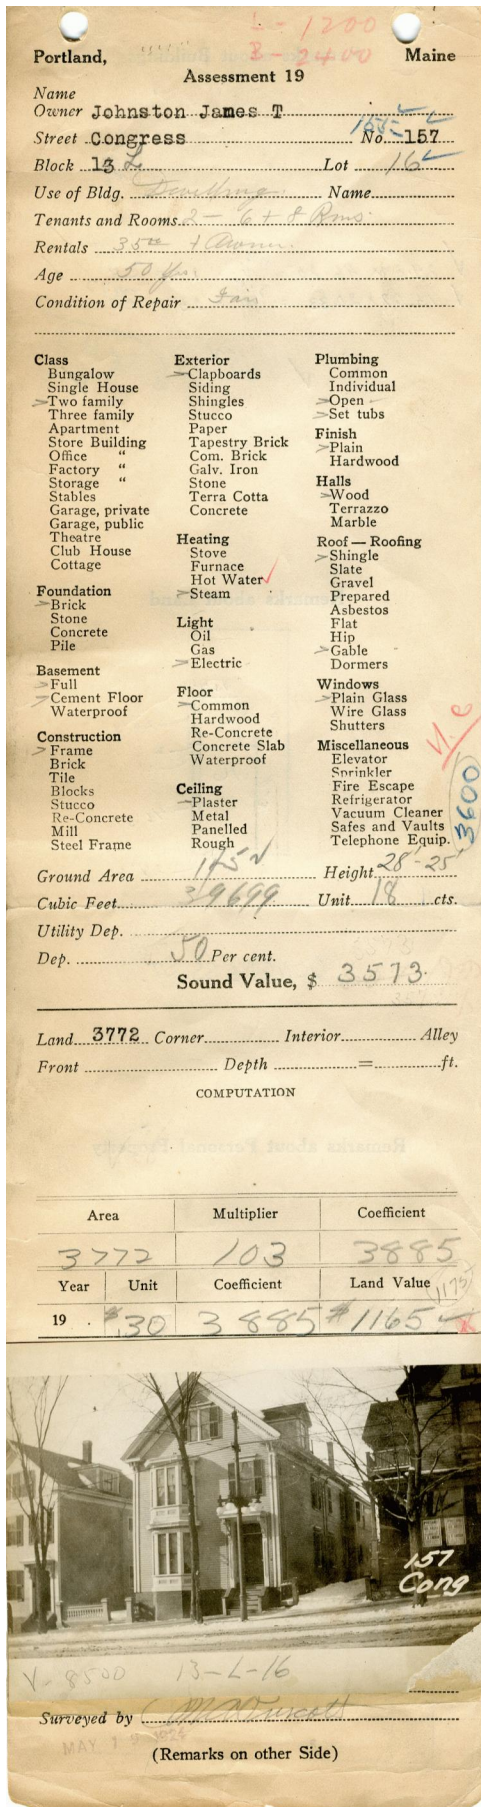 L - 1200
B - 2400
Portland, Maine
Assessment 19
Name
Owner Johnston James T
155-
Street Congress No. 157
Block 13 L Lot 16
Use of Bldg. Dwelling Name
Tenants and Rooms 2 - 6 + 8 Rms.
Rentals 35 00 + Owner
Age 50 yrs.
Condition of Repair Fair
Class
Bungalow
Single House
Two family
Three family
Apartment
Store Building
Office "
Factory "
Storage "
Stables
Garage, private
Garage, public
Theatre
Club House
Cottage
Foundation
Brick
Stone
Concrete
Pile
Basement
Full
Cement Floor
Waterproof
Construction
Frame
Brick
Tile
Blocks
Stucco
Re-Concrete
Mill
Steel Frame
Exterior
Clapboards
Siding
Shingles
Stucco
Paper
Tapestry Brick
Com. Brick
Galv. Iron
Stone
Terra Cotta
Concrete
Heating
Stove
Furnace
Hot Water
Steam
Light
Oil
Gas
Electric
Floor
Common
Hardwood
Re-Concrete
Concrete Slab
Waterproof
Ceiling
Plaster
Metal
Panelled
Rough
Plumbing
Common
Individual
Open
Set tubs
Finish
Plain
Hardwood
Halls
Wood
Terrazzo
Marble
Roof — Roofing
Shingle
Slate
Gravel
Prepared
Asbestos
Flat
Hip
Gable
Dormers
Windows
Plain Glass
Wire Glass
Shutters
Miscellaneous
Elevator
Sprinkler
Fire Escape
Refrigerator
Vacuum Cleaner
Safes and Vaults
Telephone Equip.
N.C
3600
Ground Area Height 28'-25'
Cubic Feet 39699 Unit 18 cts.
Utility Dep.
Dep. 50 Per cent.
Sound Value, $ 3573
Land 3772 Corner Interior Alley
Front Depth = ft.
COMPUTATION
Area Multiplier Coefficient
3772 103 3885
Year Unit Coefficient Land Value 1175
19 . $.30 3885 $1165
157
Cong
V- 8500 13-L-16
Surveyed by
MAY 1
(Remarks on other Side)